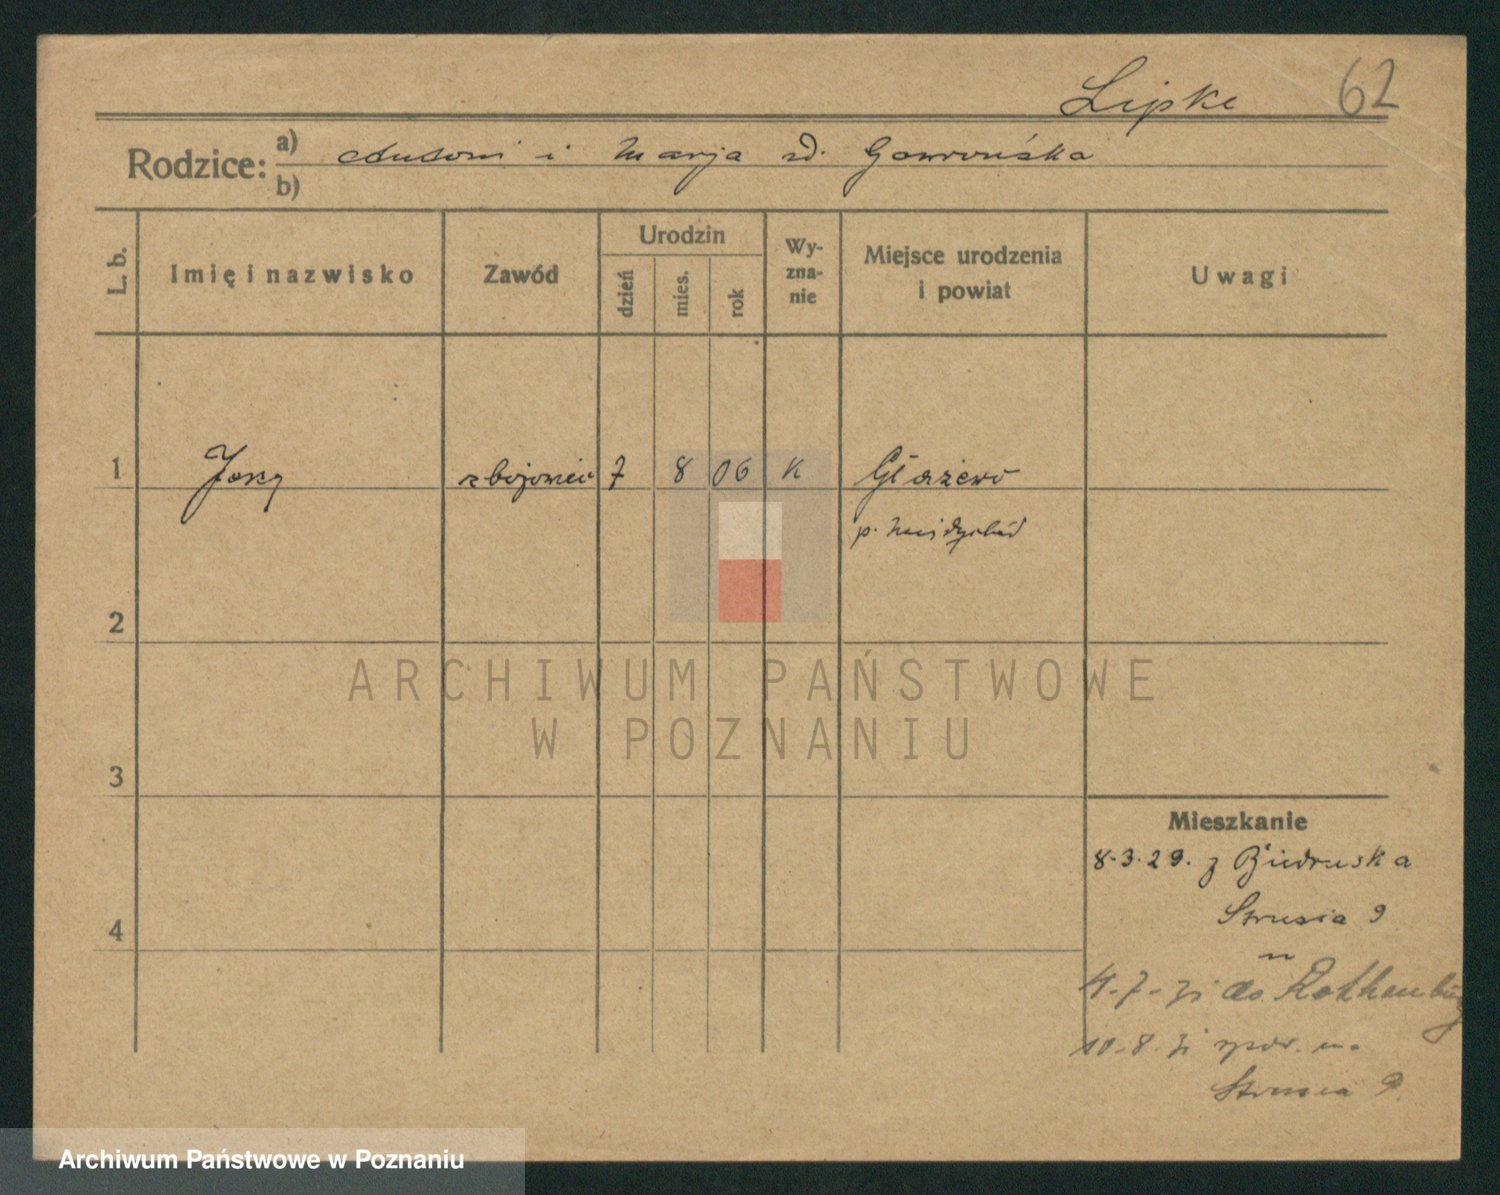 Lipke 62
Rodzice: a) Antoni i Marja zd. Gawrońska
b)
L. b. Imię i nazwisko Zawód Urodzin dzień mies. rok Wyznanie Miejsce urodzenia i powiat Uwagi
1 Jerzy 7 8 06 K Głażewo
p. Międzychód
2
3
4
Mieszkanie
8.3.29. z Biedruska
Strusia 9
4-7-31 do Rothenburg
10-8-31
Strusia 9.
ARCHIWUM PAŃSTWOWE
W POZNANIU
Archiwum Państwowe w Poznaniu